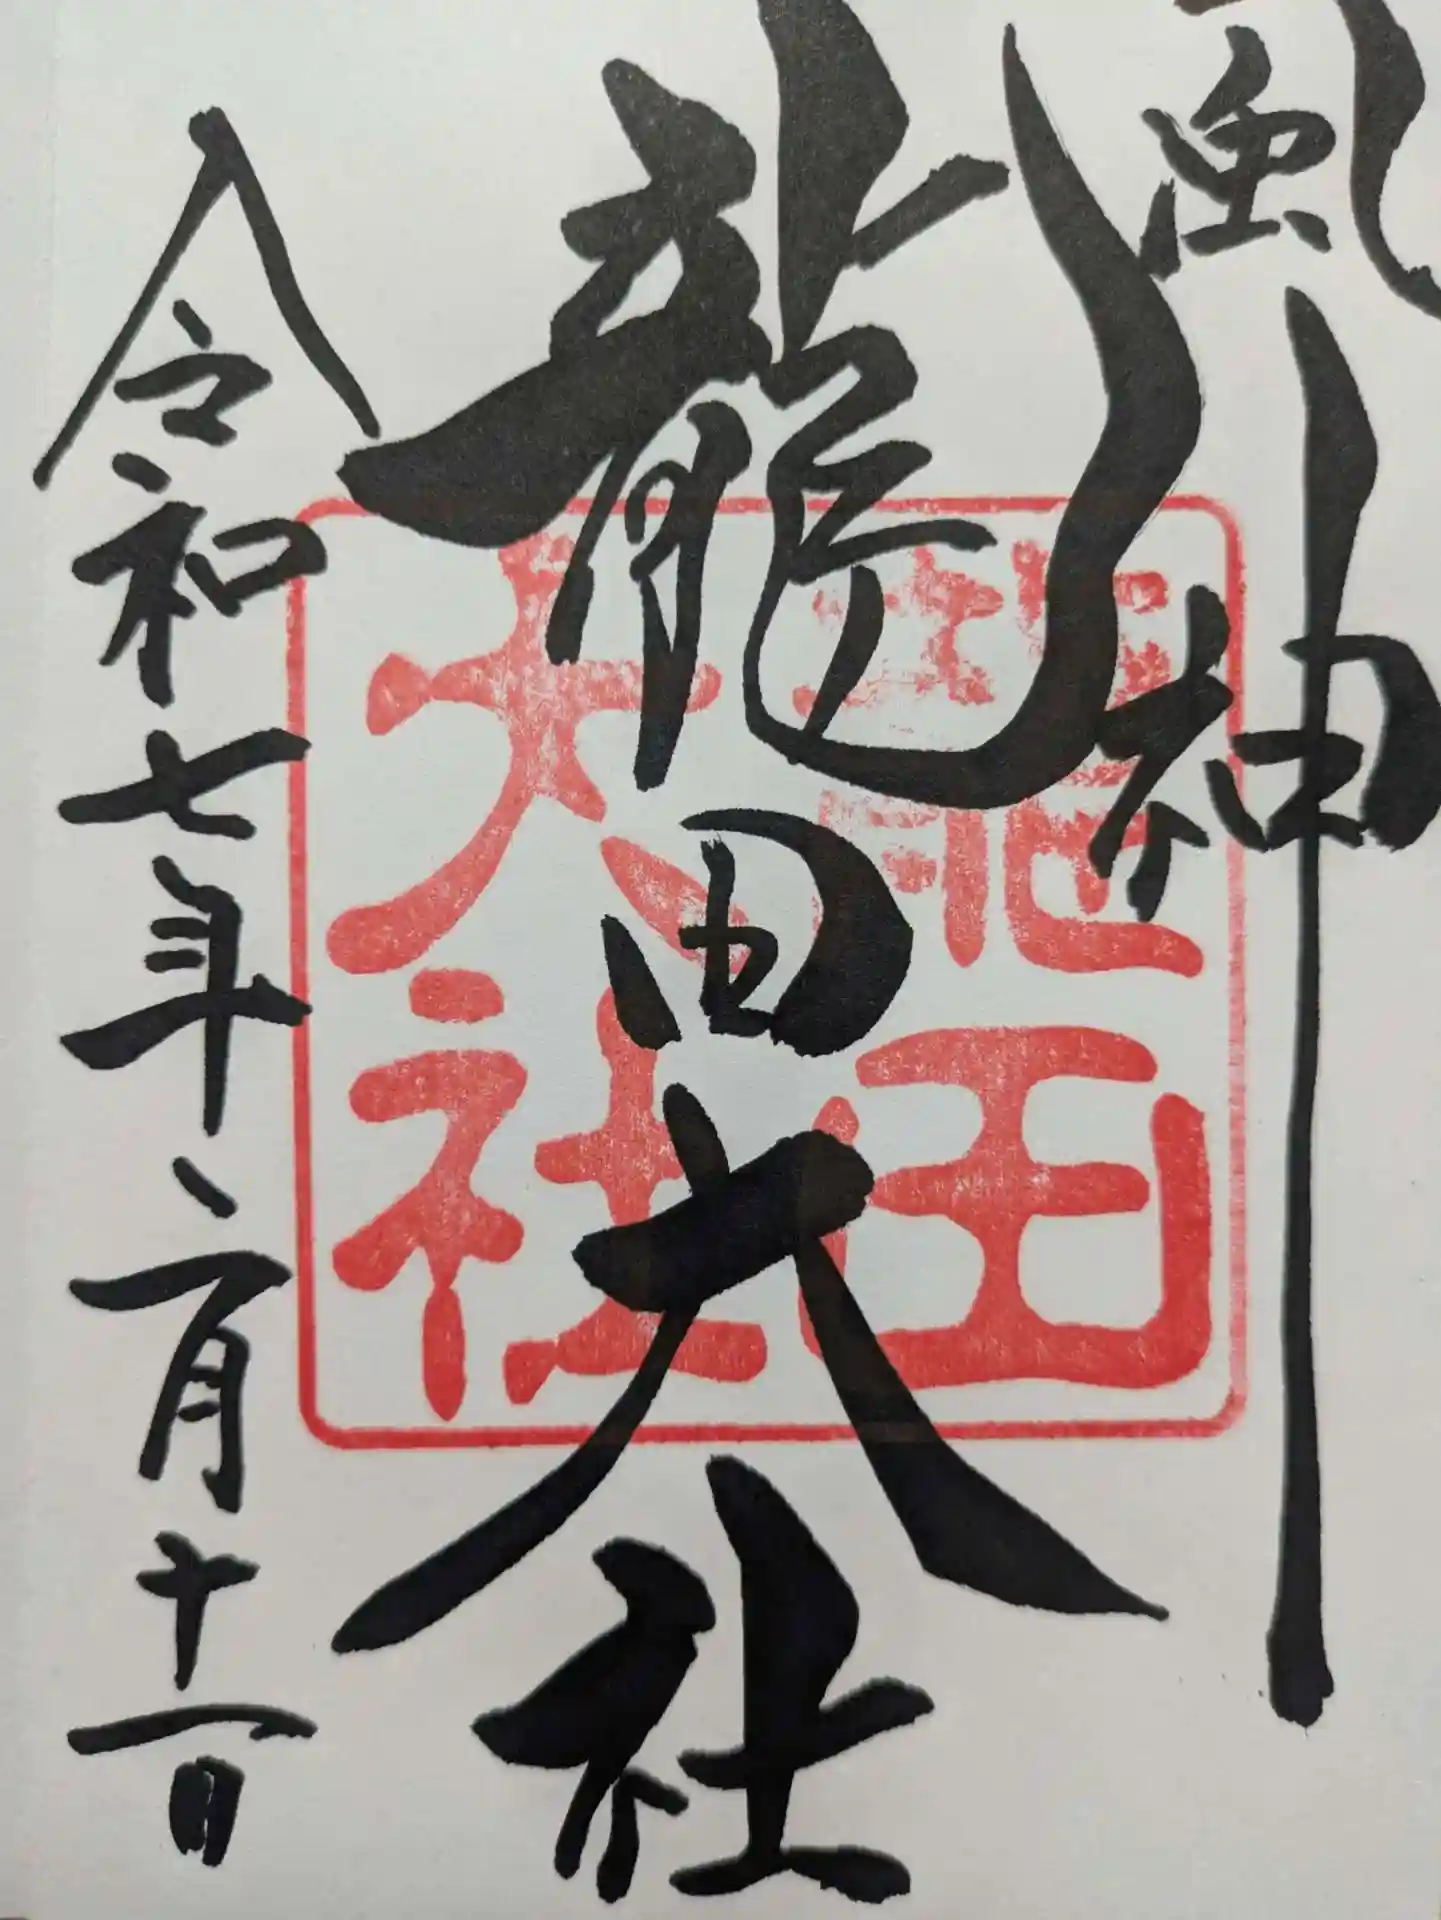 風神
龍田大社
令和七年二月十一日
龍田
大社